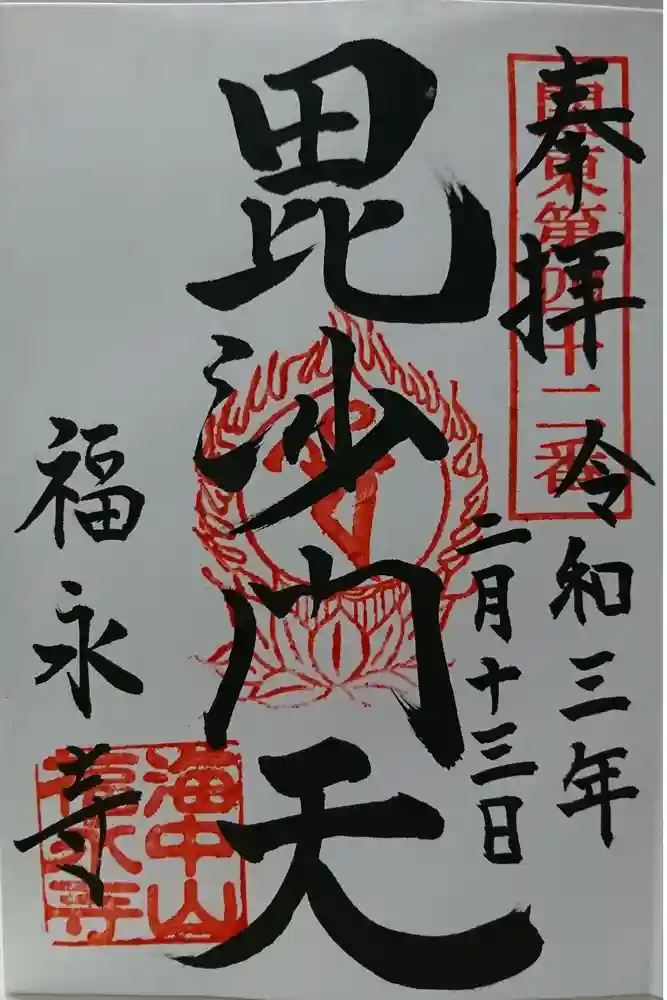 奉拝
関東第四十二番
令和三年
二月十三日
毘沙門天
福永寺
海中山
福永寺